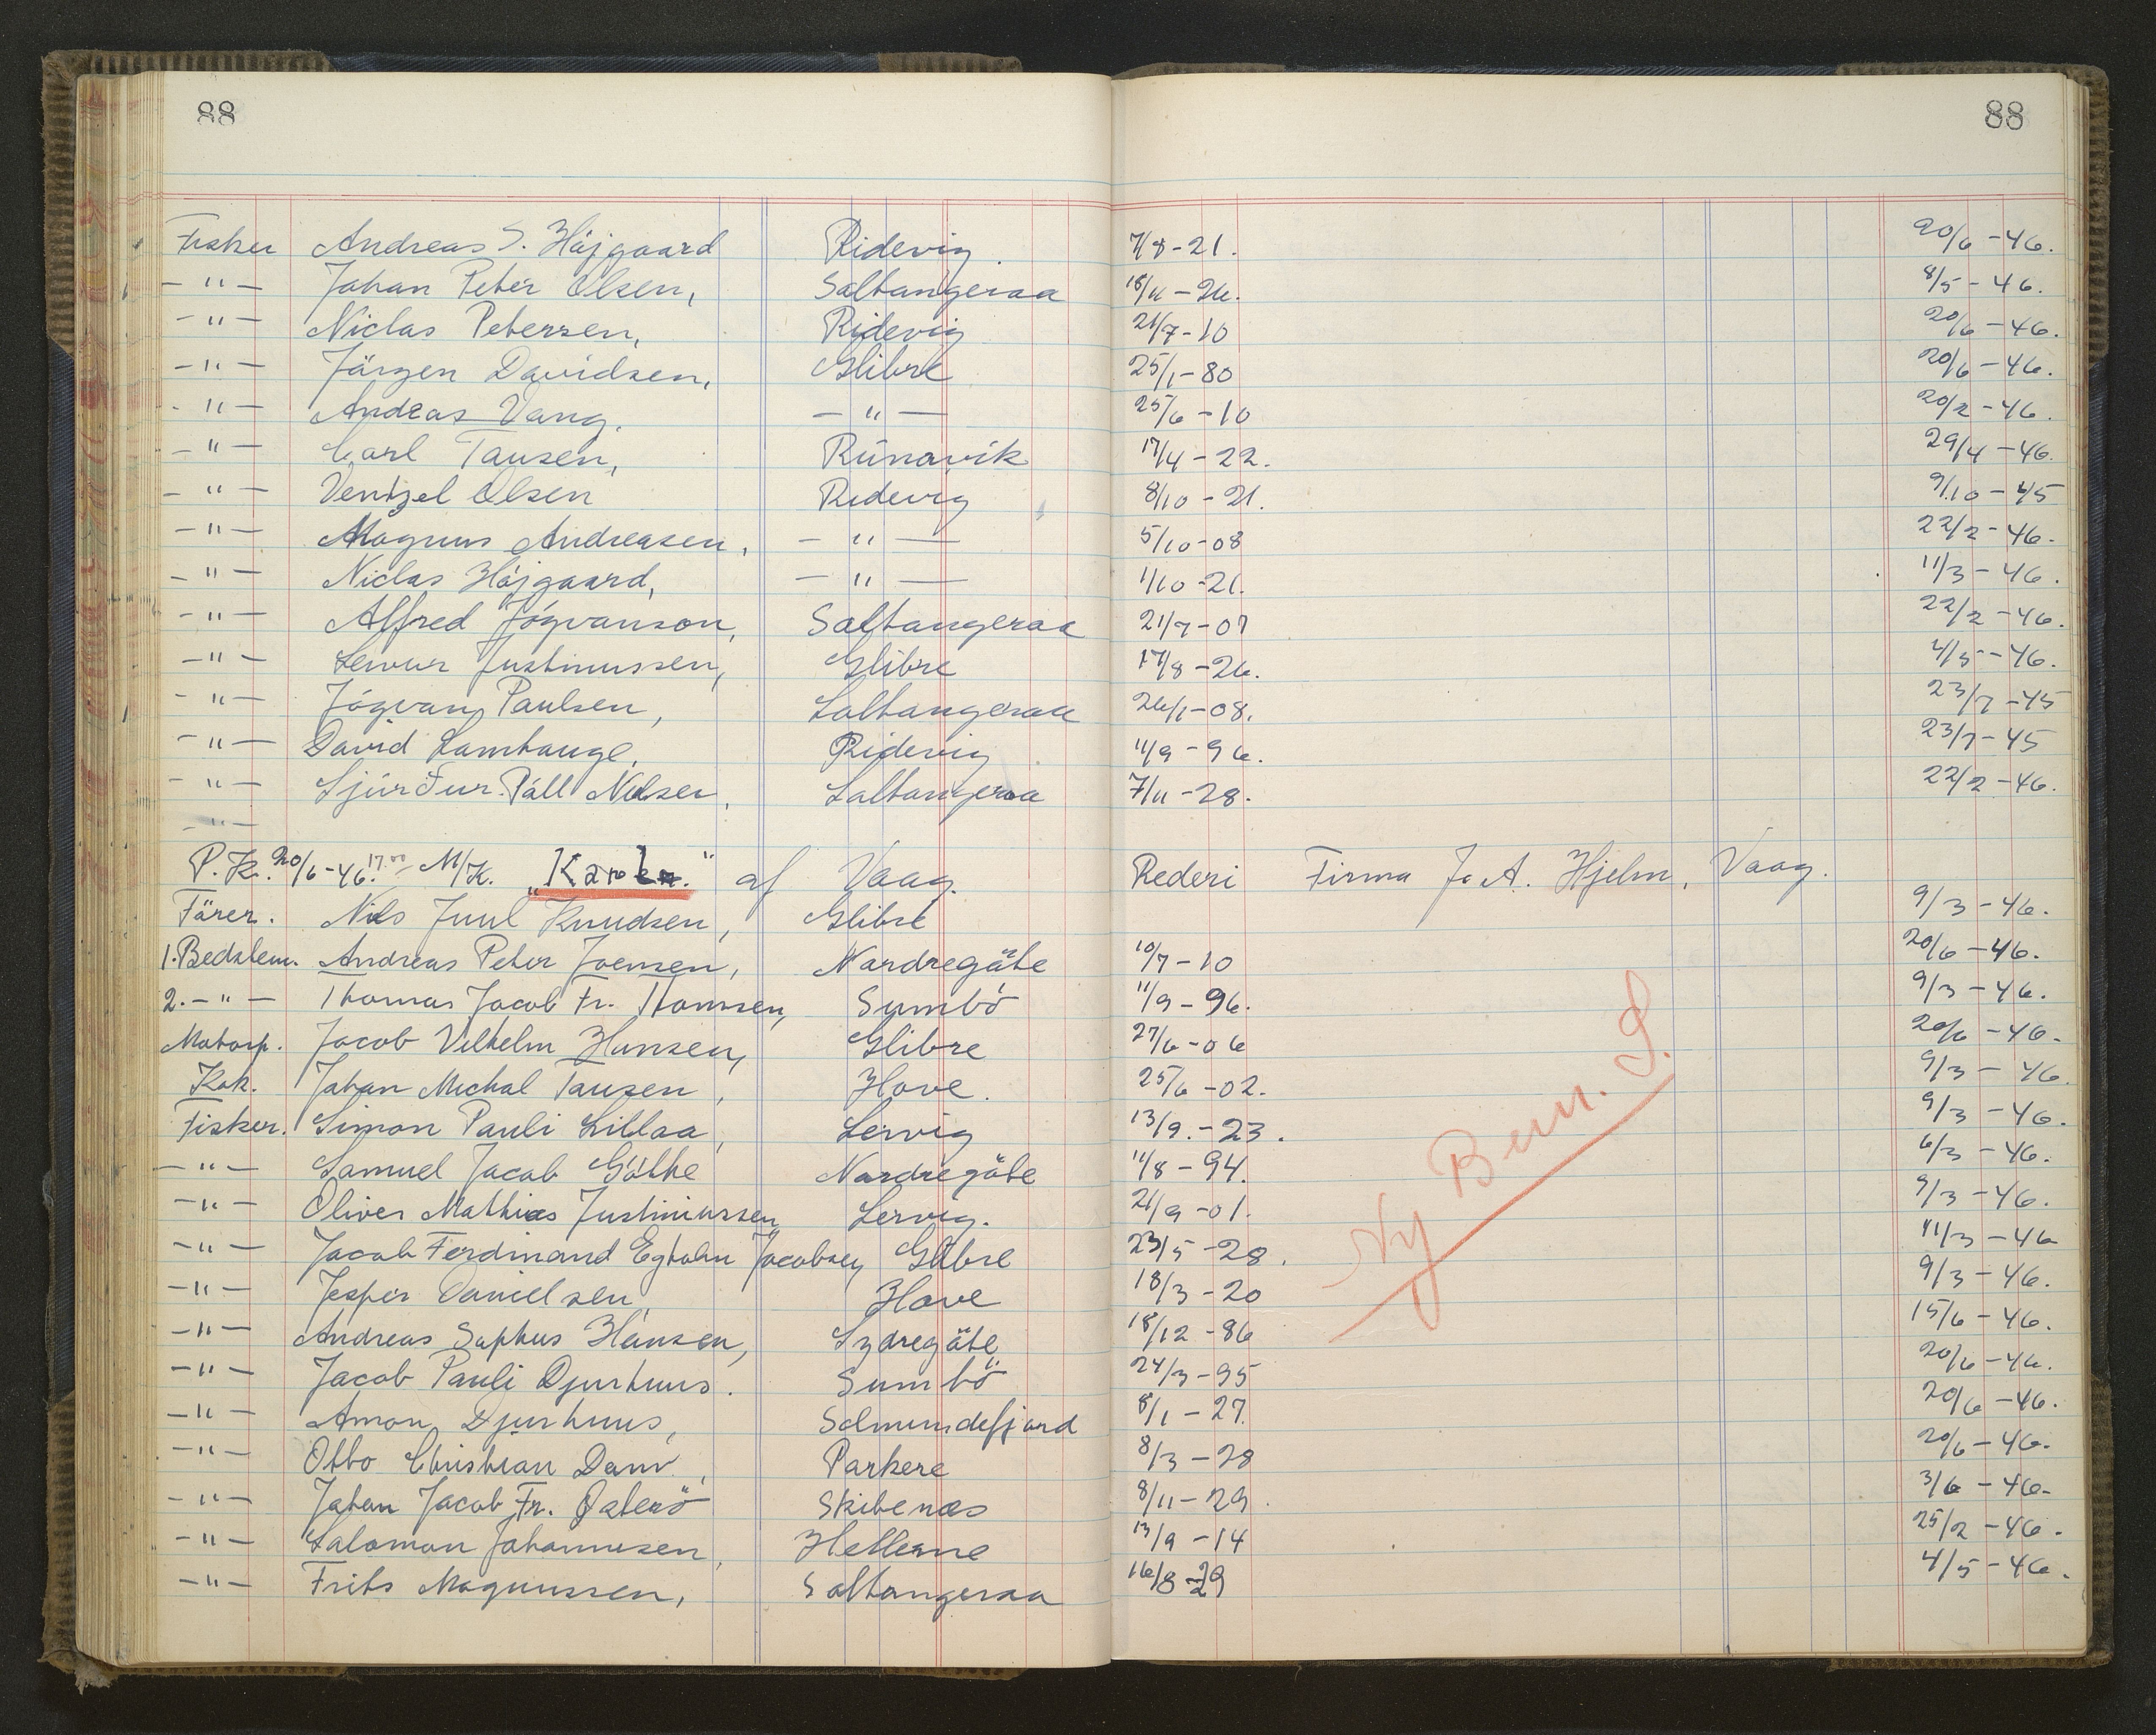 88 88
Fisker Andreas S. Højgaard Ridevig. 7/8-21. 20/6-46.
-"- Johan Peter Olsen, Saltangeraa 18/11-26. 8/5-46.
-"- Niclas Petersen, Ridevig 21/7-10 20/6-46.
-"- Jörgen Davidsen, Glibre 25/1-80 20/6-46.
-"- Andreas Vang. -"- 25/6-10 20/2-46.
-"- Carl Tausen, Rúnavík 17/4-22. 29/4-46.
-"- Ventzel Olsen Ridevig 8/10-21. 9/10-45
-"- Magnus Andreasen, -"- 5/10-08 22/2-46.
-"- Niclas Højgaard, -"- 1/10-21. 11/3-46.
-"- Alfred Jógvanson, Saltangeraa 21/7-07 22/2-46.
-"- Justinussen, Glibre 17/8-26. 4/5-46.
-"- Jógvan Paulsen, Saltangeraa 26/1-08. 23/7-45
-"- David Lamhauge, Ridevig 11/9-96. 23/7-45
-"- Sjúrður Páll Nilsen, Saltangeraa 7/11-28. 22/2-46.
-"-
P.K. 20/6-46. 17.00 M/K. "Karoln." af Vaag. Rederi Firma J. A. Hjelm, Vaag.
Förer. Nils Juul Knudsen, Glibre 9/3-46.
1.Bedstem. Andreas Peter Joensen, Nordregöte 10/7-10 20/6-46.
2.-"- Thomas Jacob Fr. Thomsen, Sumbö 11/9-96. 9/3-46.
Motorp. Jacob Vilhelm Hansen, Glibre 27/6-06 20/6-46.
Kok. Johan Michal Tausen, Hove. 25/6-02. 9/3-46.
Fisker. Simon Pauli Lillaa, Lervig 13/9.-23. 9/3-46.
-"- Samuel Jacob Göthe Nordregöte 11/8-94. 6/3-46.
-"- Oliver Mathias Justinussen, Lervig. 21/9-01. 9/3-46.
-"- Jacob Ferdinand Egholm Jacobsen, Glibre 23/5-28. 11/3-46
-"- Jesper Danielsen, Hove 18/3-20 9/3-46.
-"- Andreas Sophus Hansen, Sydregöte 18/12-86 15/6-46.
-"- Jacob Pauli Djurhuus. Sumbö 24/3-95 20/6-46.
-"- Amon Djurhuus, Solmundefjord 8/1-27. 20/6-46.
-"- Otto Christian Dam, Parkere 8/3-28 20/6-46.
-"- Johan Jacob Fr. Österö Skibenæs 8/11-29. 3/6-46.
-"- Salomon Johannesen, Hellerne 13/9-14 25/2-46.
-"- Frits Magnussen, Saltangeraa 16/8-29 4/5-46.
Ny Bem. S.